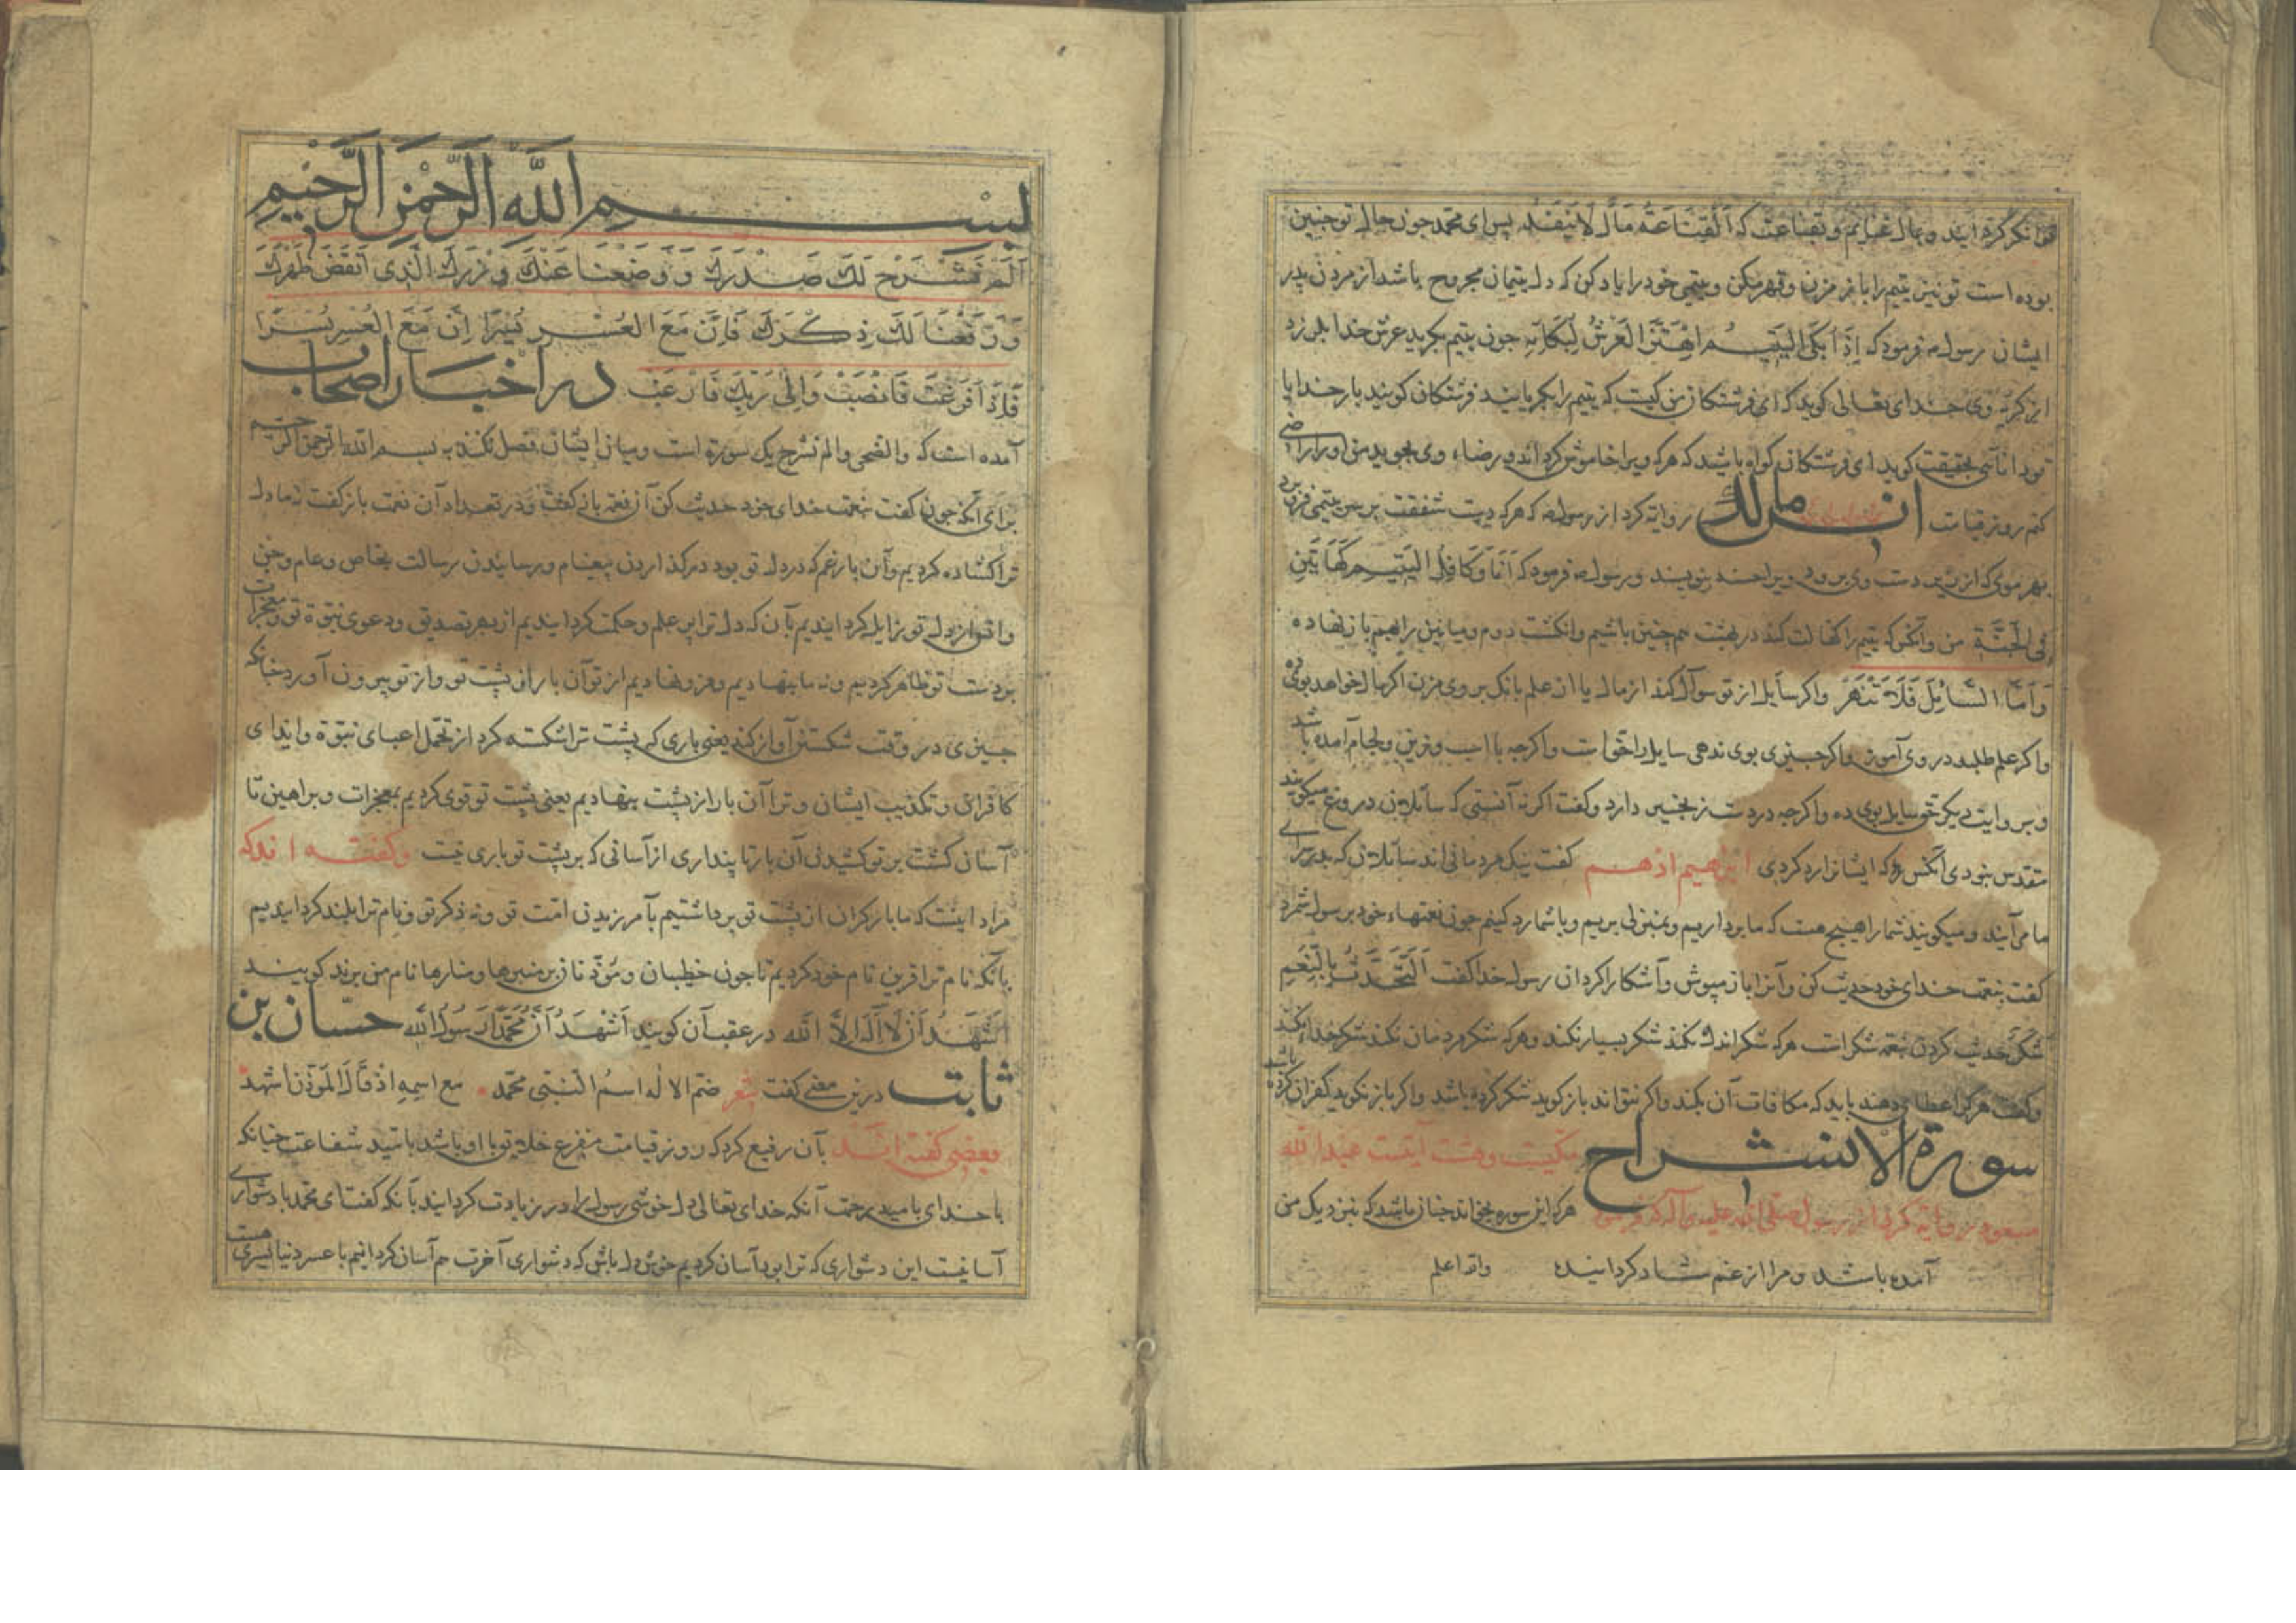 توانكر كرد ايند و بمال غنايم و بقناعت كه اَلْقَنَاعَةُ مَالٌ لَا يَنفَدُ پس ای محمد جون حال تو جنين
بوده است تو نيز يتيم را باز مزن و قهر مكن و يتيمی خود را ياد كن كه دل يتيمان مجروح باشد از مردن پدر
ايشان رسول فرمود كه اِذَا بَكَى اليَتِيمُ اهْتَزَّ العَرْشُ لِبُكَائِهِ جون يتيم بكريد عرش خدا بلرزد
از كريه وی خدای تعالی كويد كه ای فرشتكان من كيست كه يتيم را بكريانيد فرشتكان كويند بار خدايا
تو داناتری بحقيقت كويد ای فرشتكان كواه باشيد كه هر كه ويرا خاموش كرداند و رضاء وی بجويد من او را راضی
كنم روز قيامت انس مالك روايه كرد از رسول كه هر كه دست شفقت بر سر يتيمی فرو برد
بهر موی كه از زير دست وی برود ويرا حسنه بنويسند و رسول فرمود كه اَنَا وَكَافِلُ اليَتِيمِ كَهَاتَينِ
فِی الْجَنَّةِ من و آنكس كه يتيم را كفالت كند در بهشت هم چنين باشيم و انكشت دوم و ميانين را بهم باز نهاده
وَاَمَّا السَّائِلَ فَلَا تَنْهَرْ و اكر سايل از تو سوآل كند از مال يا از علم بانك بر وی مزن اكر مال خواهد بوی ده
و اكر علم طلبد در وی آموز و اكر جيزی بوی ندهی سايل را حق است و اكرجه با اسب و زين و لجام آمده باشد
و بروايت ديكر حق سايل بوی ده و اكرجه در دست زنجير دارد و كفت اكر نه آنستی كه سآئلان دروغ ميكويند
مقدس نبودی آنكس كه ايشانرا رد كردی ابراهيم ادهم كفت نيك مردمانی اند سآئلان كه بدر سرای
ما می آيند و ميكويند شما را هيچ هست كه ما برداريم و بمنزل بريم و با شما رد كنيم جون نعمتهاء خود بر رسول شمرد
كفت بنعمت خدای خود حديث كن و آنرا باز مپوش و آشكارا كردان رسول خدا كفت اَلتَّحَدُّثُ بِالنِّعَمِ
شُكْرٌ حديث كردن نعمه شكر است هر كه شكر اندك نكند شكر بسيار نكند و هر كه شكر مردمان نكند شكر خدا نكند
و كفت هر كرا عطا دهند بايد كه مكافات آن بكند و اكر نتواند باز كويد شكر كرده باشد و اكر باز نكويد كفران كرده باشد
سورة الانشراح مكيست و هشت آيتست عبد الله
مسعود روايه كرد از رسول صلی الله عليه و آله كه فرمود هر كه اين سوره بخواند چنان باشد كه بنزديك من
آمده باشد و مرا از غم شاد كردانيده والله اعلم
بسم الله الرحمن الرحيم
اَلَمْ نَشْرَحْ لَكَ صَدْرَكَ وَوَضَعْنَا عَنْكَ وِزْرَكَ الَّذِی اَنْقَضَ ظَهْرَكَ
وَرَفَعْنَا لَكَ ذِكْرَكَ فَاِنَّ مَعَ العُسْرِ يُسْرًا اِنَّ مَعَ الْعُسْرِ يُسْرًا
فَاِذَا فَرَغْتَ فَانْصَبْ وَاِلٰی رَبِّكَ فَارْغَبْ در اخبار اصحاب
آمده است كه والضحی والم نشرح يك سورة است و ميان ايشان فصل نكنند به بسم الله الرحمن الرحيم
برای آنكه جون كفت بنعمت خدای خود حديث كن آن نعمه باز كفت و در تعداد آن نعمت باز كفت نه ما دل
ترا كشاده كرديم و آن بار غم كه در دل تو بود در كذاردن پيغام و رسانيدن رسالت بخاص و عام و جن
و انس از دل تو زايل كردانيديم بآن كه دل ترا پر علم و حكمت كردانيديم از بهر تصديق و دعوی نبوة تو و معجزات
بر دست تو ظاهر كرديم و نه ما بنهاديم و فرو نهاديم از تو آن بار از پشت تو و از تو بيرون آورد چنانكه
جيزی در وقت شكستن آواز كند يعنی باری كه پشت ترا شكسته كرد از تحمل اعبای نبوة و ايذای
كافران و تكذيب ايشان و ترا آن بار از پشت بنهاديم يعنی پشت تو قوی كرديم بمعجزات و براهين تا
آسان كشت بر تو كشيدن آن بار تا پنداری از آسانی كه بر پشت تو باری نيست و كفته اند كه
مراد اينست كه ما بار كران از پشت تو برداشتيم بآمرزيدن امت تو و نه ذكر تو و نام ترا بلند كردانيديم
بآنكه نام ترا قرين نام خود كرديم تا جون خطيبان و مؤذنان بر منبرها و منارها نام من برند كويند
اَشْهَدُ اَنْ لَا اِلٰهَ اِلَّا الله در عقب آن كويند اَشْهَدُ اَنَّ مُحَمَّدًا رَسُولُ الله حسان بن
ثابت درين معنی كفت شعر ضم الاله اسم النبی محمد مع اسمه اذ قال المؤذن اشهد
بعضی كفته اند بآن رفيع كرد كه روز قيامت مفزع خلايق با او باشد باميد شفاعت چنانكه
با خدای باميد رحمت آنكه خدای تعالی دل خوشی رسول را در زيادت كردانيد بآنكه كفت ای محمد با دشواری
آسانيست اين دشواری كه ترا بود آسان كرديم خوش دل باش كه دشواری آخرت هم آسان كردانيم با عسر دنيا يسری هست